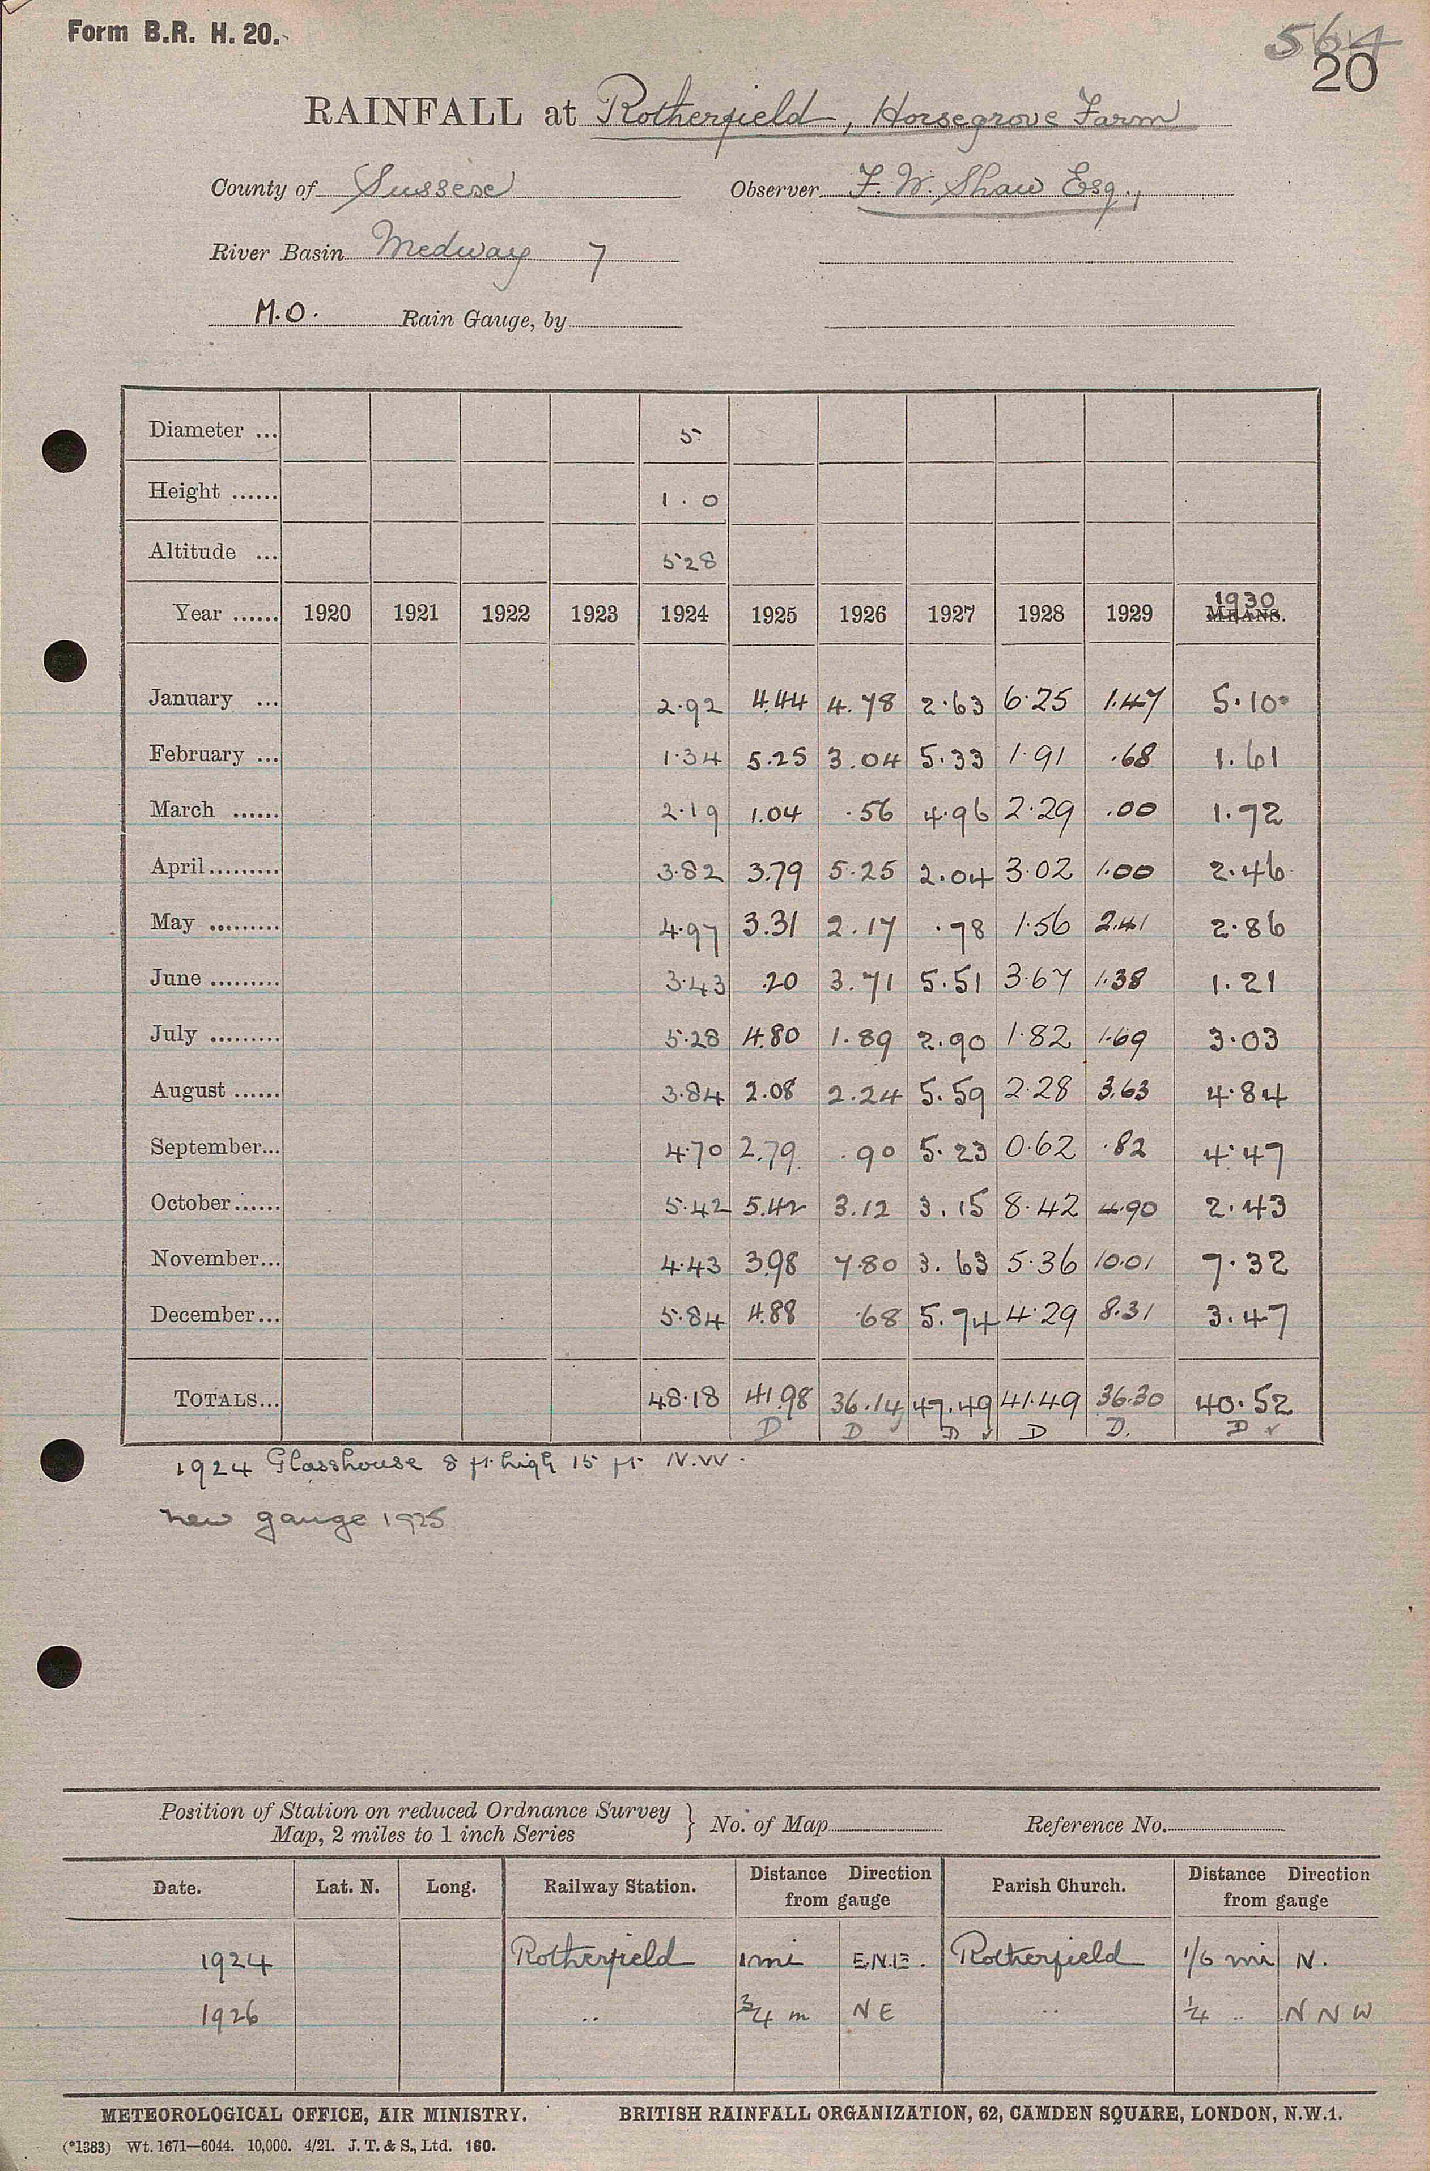 Form B.R. H. 20.
564
20
RAINFALL at Rotherfield, Horsegrove Farm
County of Sussex Observer F. W. Shaw Esq.,
River Basin Medway 7
M.O. Rain Gauge, by
Diameter ... 5
Height ...... 1.0
Altitude ... 528
Year ...... 1920 1921 1922 1923 1924 1925 1926 1927 1928 1929 1930 MEANS.
January ... 2.92 4.44 4.78 2.63 6.25 1.47 5.10
February ... 1.34 5.25 3.04 5.33 1.91 .68 1.61
March ...... 2.19 1.04 .56 4.96 2.29 .00 1.72
April ......... 3.82 3.79 5.25 2.04 3.02 1.00 2.46
May ......... 4.97 3.31 2.17 .78 1.56 2.41 2.86
June ......... 3.43 .20 3.71 5.51 3.67 1.38 1.21
July ......... 5.28 4.80 1.89 2.90 1.82 1.69 3.03
August ...... 3.84 2.08 2.24 5.59 2.28 3.63 4.84
September... 4.70 2.79 .90 5.23 0.62 .82 4.47
October...... 5.42 5.42 3.12 3.15 8.42 4.90 2.43
November... 4.43 3.98 7.80 3.63 5.36 10.01 7.32
December... 5.84 4.88 .68 5.74 4.29 8.31 3.47
TOTALS... 48.18 41.98 36.14 47.49 41.49 36.30 40.52
D D D ✓ D D. D ✓
1924 Glasshouse 8 ft. high 15 ft. N.W.
New gauge 1925
Position of Station on reduced Ordnance Survey Map, 2 miles to 1 inch Series } No. of Map Reference No.
Date. Lat. N. Long. Railway Station. Distance Direction from gauge Parish Church. Distance Direction from gauge
1924 Rotherfield 1 mi E.N.E. Rotherfield 1/6 mi N.
1926 .. 3/4 m NE .. 1/4 .. NNW
METEOROLOGICAL OFFICE, AIR MINISTRY. BRITISH RAINFALL ORGANIZATION, 62, CAMDEN SQUARE, LONDON, N.W.1.
(*1383) Wt. 1671—6044. 10,000. 4/21. J. T. & S., Ltd. 160.